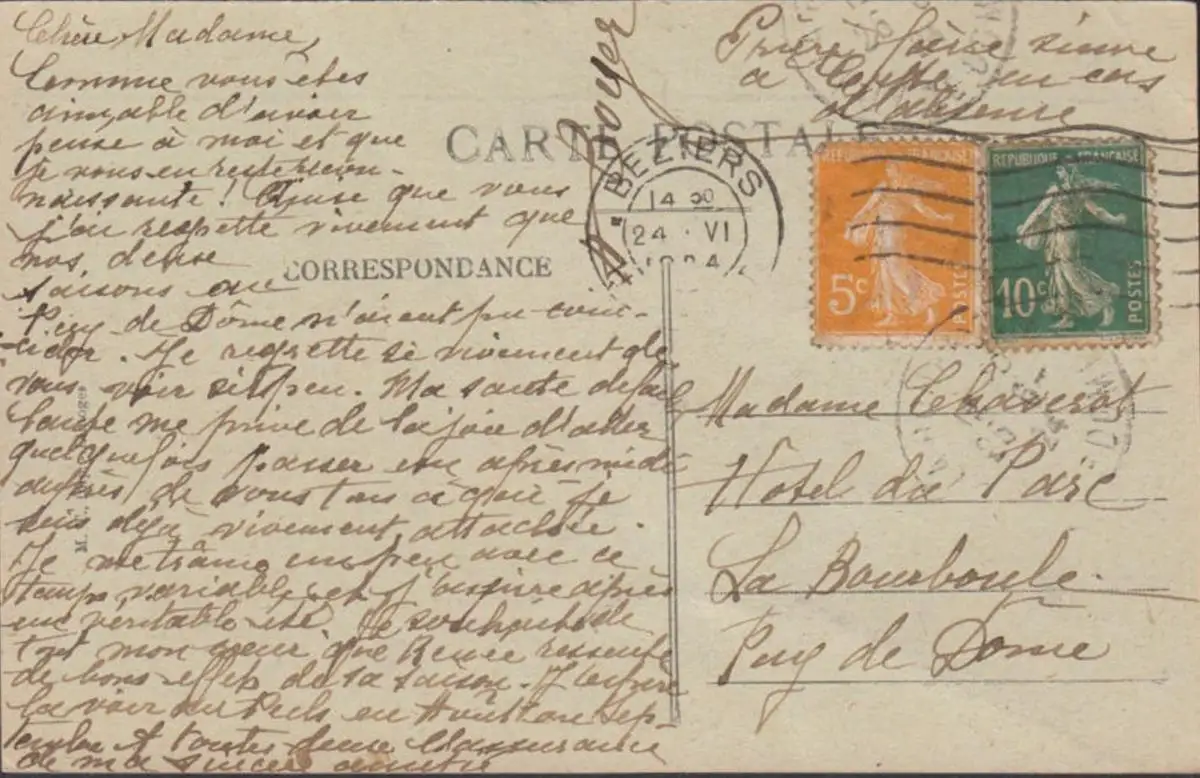 Chère Madame,
Comme vous êtes
aimable d'avoir
pensé à moi et que
je vous en reste recon-
naissante! Que vous
j'ai regretté vivement que
nos deux
saisons au
Puy de Dôme n'aient pu coin-
cider. Je regrette si vivement de
vous voir si peu. Ma santé défail
lante me prive de la joie d'aller
quelquefois passer un après midi
auprès de vous tous à qui je
suis déjà vivement attachée.
Je me traîne un peu avec ce
temps variable et j'aspire après
un véritable été. Je souhaite de
tout mon cœur que Renée ressente
de bons effets de sa saison. J'espère
la voir en Août ou Sep-
tembre à toutes deux l'assurance
de ma sincère amitié
Prière faire suivre
a en cas
d'absence
CARTE POSTALE
CORRESPONDANCE
BEZIERS
14
24 · VI
REPUBLIQUE FRANÇAISE
5c
POSTES
REPUBLIQUE FRANÇAISE
10c
POSTES
Madame Chaverot
Hotel du Parc
La Bourboule
Puy de Dome